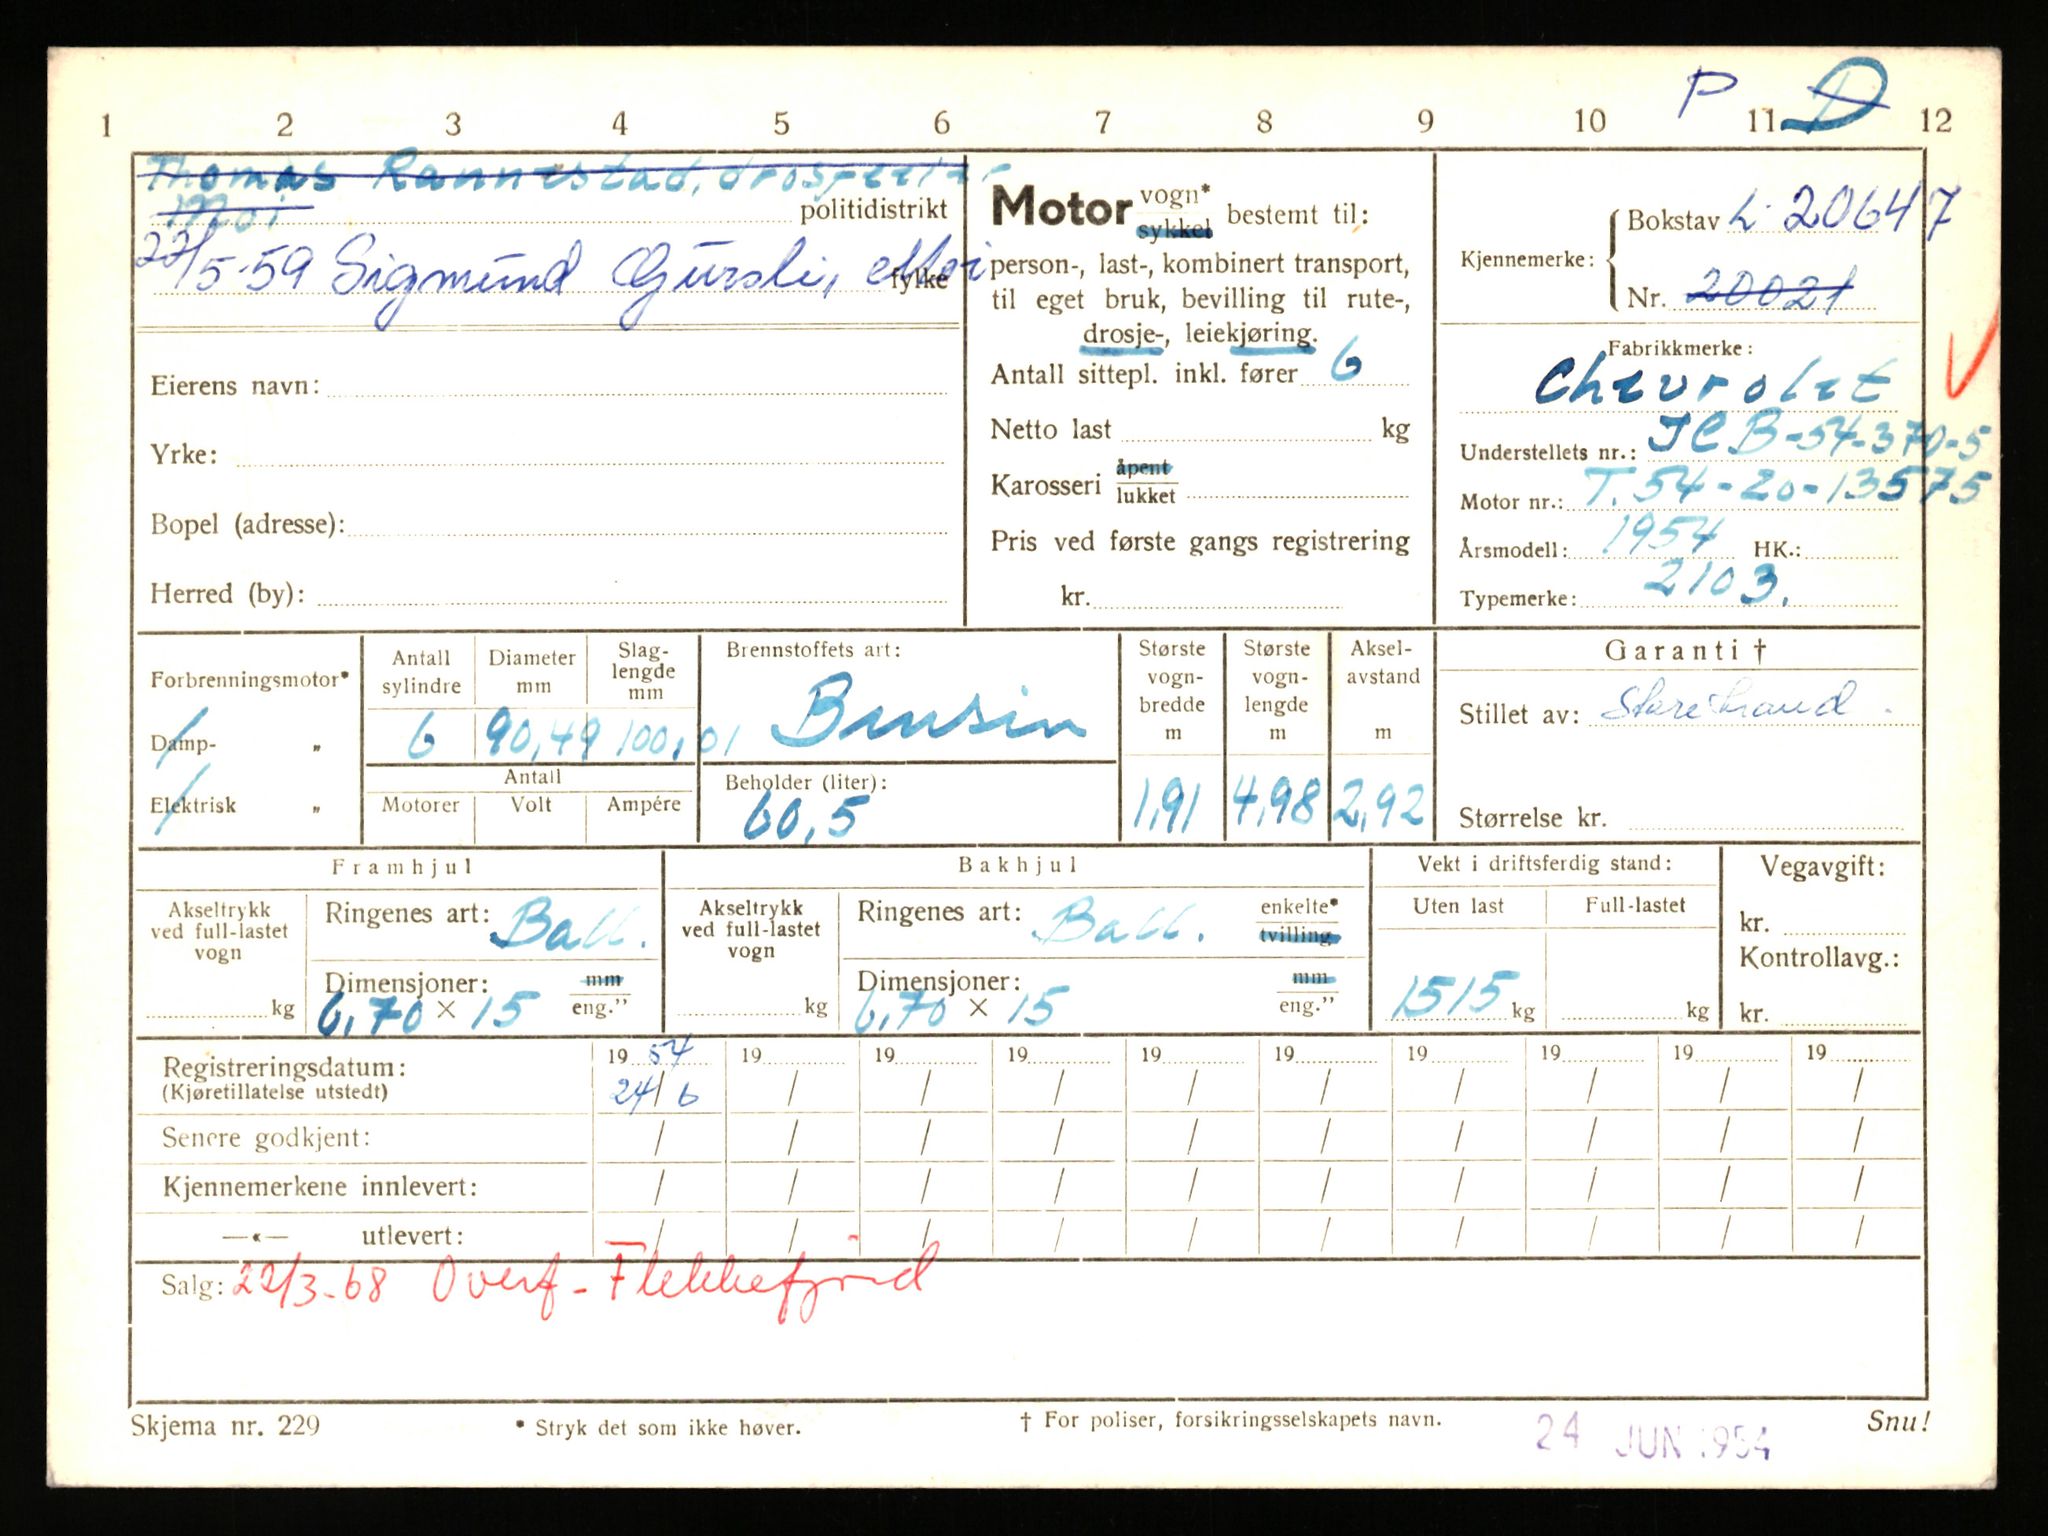 P D
1 2 3 4 5 6 7 8 9 10 11 12
Thomas Rannestad, drosjeeier
Moi politidistrikt
22/5-59 Sigmund Gursli, fylke
Eierens navn:
Yrke:
Bopel (adresse):
Herred (by):
Motor vogn* sykkel bestemt til:
person-, last-, kombinert transport,
til eget bruk, bevilling til rute-,
drosje-, leiekjøring.
Antall sittepl. inkl. fører 6
Netto last kg
Karosseri åpent lukket
Pris ved første gangs registrering
kr.
Kjennemerke: Bokstav L 20647
Nr. 20021
Fabrikkmerke:
Chevrolet
Understellets nr.: JCB-54-370-5
Motor nr.: T.54-20-13575
Årsmodell: 1954 HK.:
Typemerke: 2103.
Forbrenningsmotor*
Damp- „
Elektrisk „
Antall sylindre
Diameter mm
Slaglengde mm
6 90,49 100,01
Antall
Motorer Volt Ampére
Brennstoffets art:
Bensin
Beholder (liter):
60,5
Største vogn-bredde m
Største vogn-lengde m
Aksel-avstand m
1,91 4,98 2,92
Garanti †
Stillet av: Storebrand.
Størrelse kr.
Framhjul
Akseltrykk ved full-lastet vogn
kg
Ringenes art: Ball.
Dimensjoner: mm eng.”
6,70 × 15
Bakhjul
Akseltrykk ved full-lastet vogn
kg
Ringenes art: Ball. enkelte* tvilling
Dimensjoner: mm eng.”
6,70 × 15
Vekt i driftsferdig stand:
Uten last Full-lastet
1515 kg kg
Vegavgift:
kr.
Kontrollavg.:
kr.
Registreringsdatum: 19 54 19 19 19 19 19 19 19 19 19
(Kjøretillatelse utstedt) 24/6 / / / / / / / / /
Senere godkjent: / / / / / / / / / /
Kjennemerkene innlevert: / / / / / / / / / /
—«— utlevert: / / / / / / / / / /
Salg: 22/3-68 Overf - Flekkefjord
Skjema nr. 229 * Stryk det som ikke høver. † For poliser, forsikringsselskapets navn. Snu!
24 JUN 1954